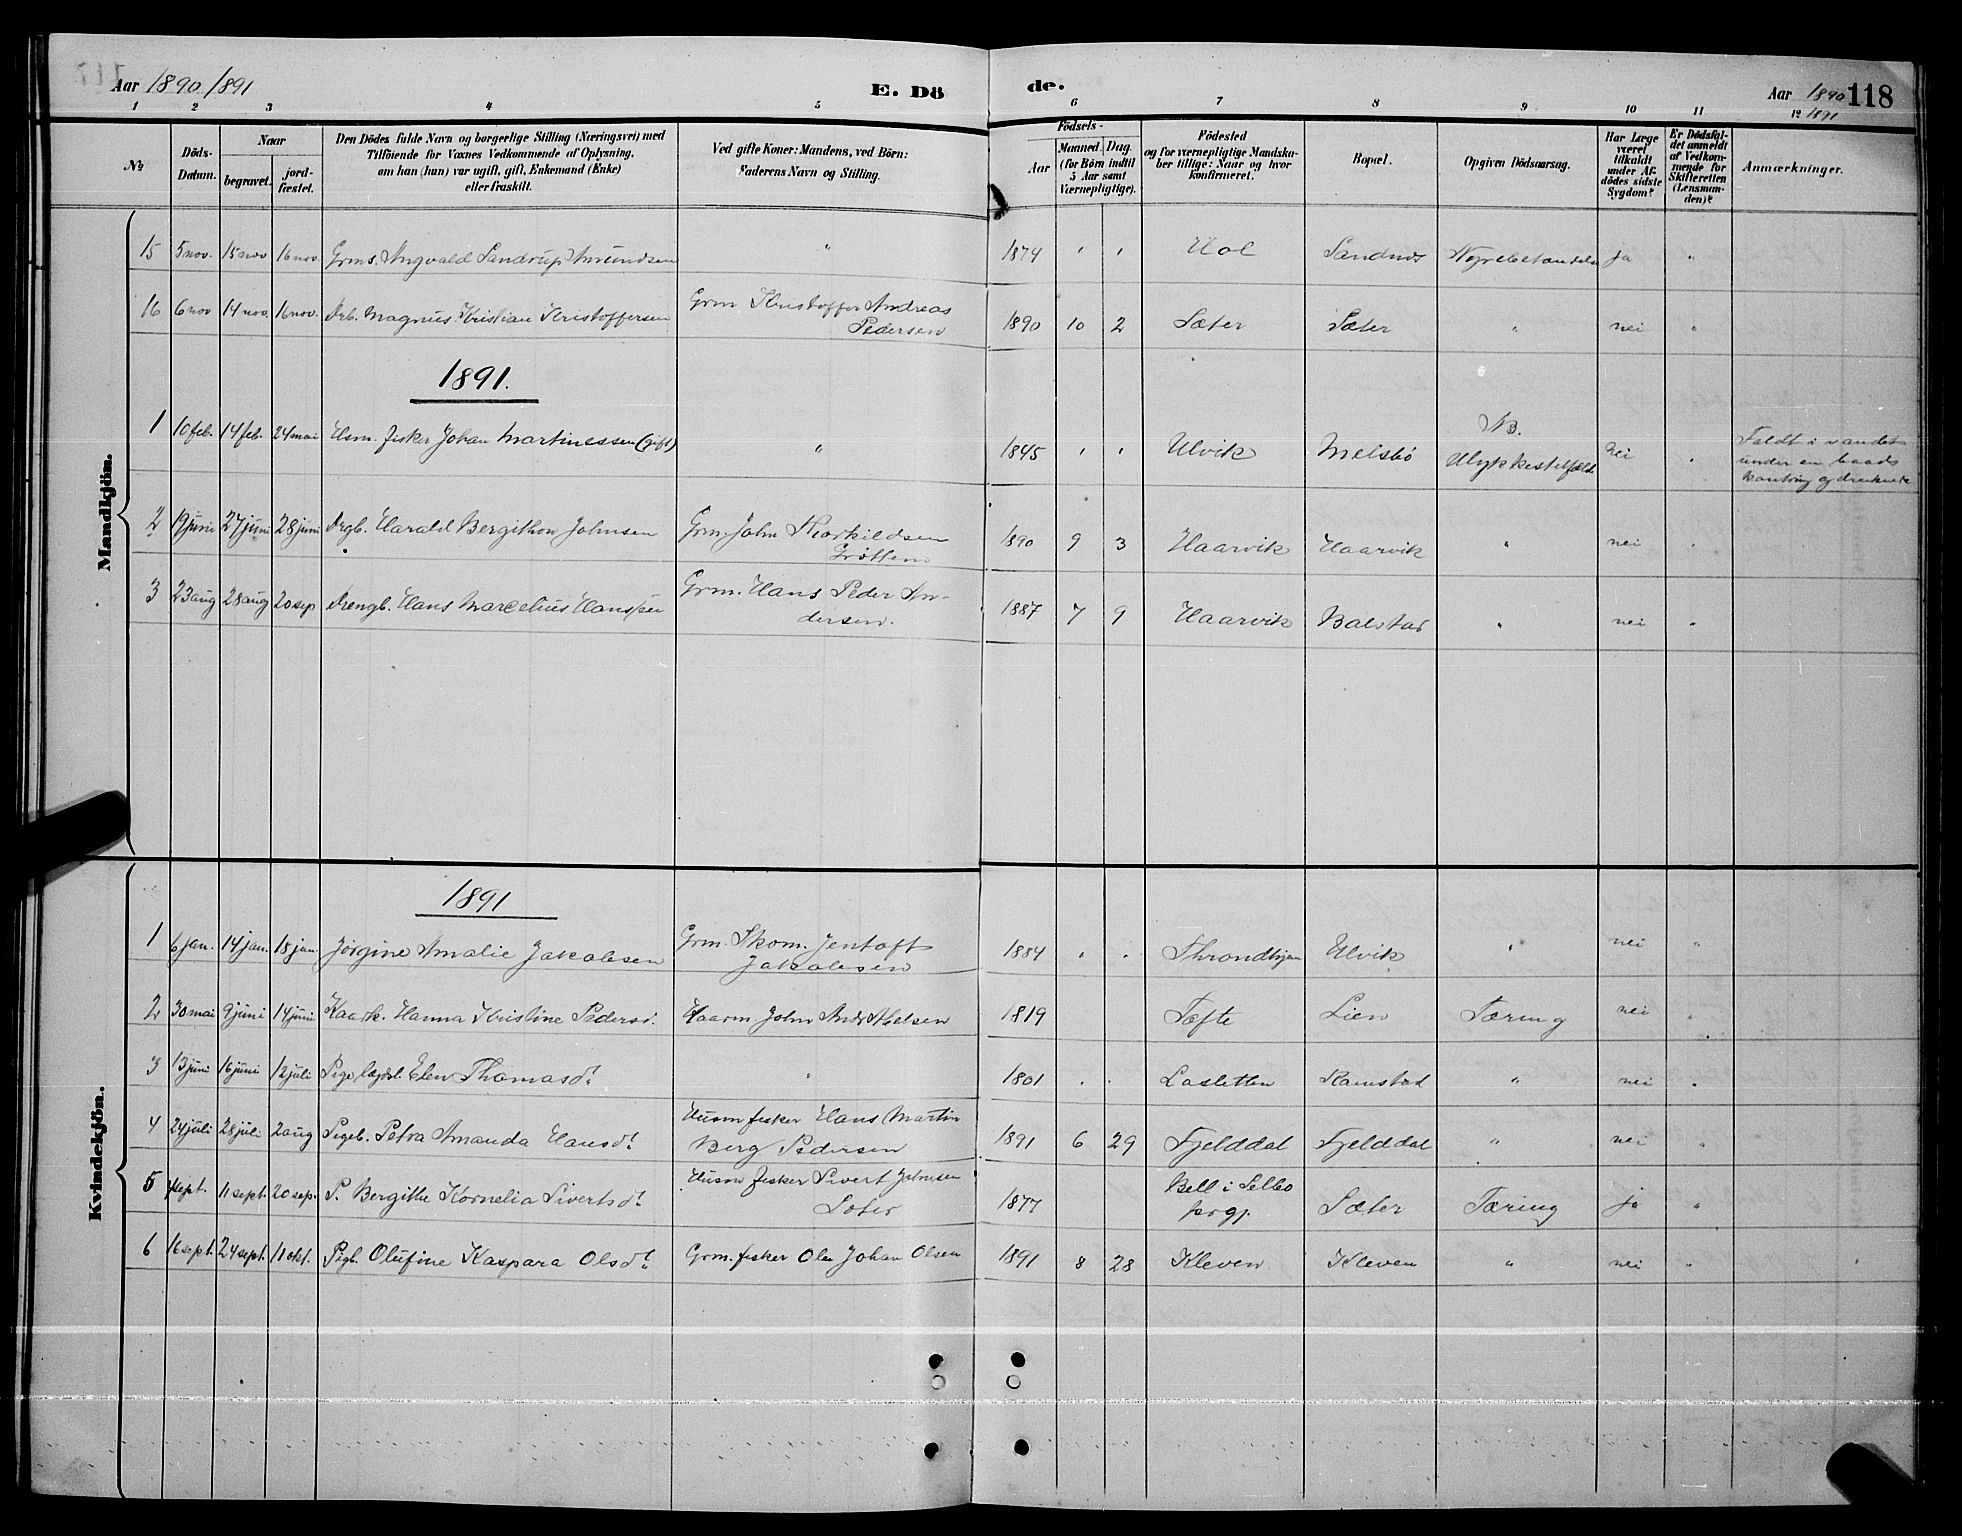 Aar 1890/1891 E. Dö de. Aar 1890 118
1891
1 2 3 4 5 6 7 8 9 10 11 12
№
Döds-Datum.
Naar
begravet.
jord-fæstet.
Den Dödes fulde Navn og borgerlige Stilling (Næringsvei) med
Tilföiende for Voxnes Vedkommende af Oplysning,
om han (hun) var ugift, gift, Enkemand (Enke)
eller fraskilt.
Ved gifte Koner: Mandens, ved Börn:
Faderens Navn og Stilling.
Födsels-
Aar
Maaned. Dag.
(for Börn indtil
5 Aar samt
Værnepligtige).
Födested
og for værnepligtige Mandska-
ber tillige: Naar og hvor
konfirmeret.
Bopæl.
Opgiven Dödsaarsag.
Har Læge
været
tilkaldt
under Af-
dödes sidste
Sygdom?
Er Dödsfal-
det anmeldt
af Vedkom-
mende for
Skifteretten
(Lensman-
den)?
Anmærkninger.
Mandkjön.
15 5 nov. 15 nov 16 nov. Grms. Angvald Sandrup Amundsen " 1874 " " Hol Sandnes ja "
16 6 nov 14 nov. 16 nov. Drb. Magnus Kristian Kristoffersen Grm Kristoffer Andreas
Pedersen 1890 10 2 Sæter Sæter " nei "
1891.
1 10 feb. 14 feb. 24 mai Hsm. fisker Johan Martinessen (gift) " 1845 " " Ulvik Melsbö NB.
Ulykkestilfælde nei " Faldt i vandet
under en baads
kantring og druknede
2 19 juni 27 juni 28 juni Drgb. Harald Bergithon Johnsen Grm. John Thorkildsen
Gröttem 1890 9 3 Haarvik Haarvik " nei "
3 23 aug 28 aug 20 sep Drengb. Hans Marcelius Hanssen Grm. Hans Peder An-
dersen. 1887 7 9 Haarvik Balstad " nei "
Kvindekjön.
1891
1 6 jan. 14 jan. 18 jan. Jörgine Amalie Jakobsen Grm. Skom. Jentoft
Jakobsen 1884 " " Throndhjem Ulvik " nei "
2 30 mai 9 juni 14 juni Kaark. Hanna Kristine Pedersd. Kaarm. John Andr. Abelsen 1819 Tæfte Lien Tæring nei "
3 13 juni 16 juni 12 juli Pige lægdsl. Elen Thomasdt. " 1801 " Lasletten Ramstad " nei "
4 24 juli 28 juli 2 aug Pigeb. Petra Amanda Hansdt. Husm fisker Hans Martin
Berg Pedersen 1891 6 29 Fjelddal Fjelddal " nei "
5 sept. 11 sept. 20 sep. P. Bergithe Kornelia Sivertsdt. Husm fisker Sivert Johnsen
1877 Bell i Selbo
prgj. Sæter Tæring ja "
6 16 sept. 24 sept. 11 okt. Pigb. Olufine Kaspara Olsdt. Grm. fisker Ole Johan Olsen 1891 8 28 Kleven Kleven " nei "